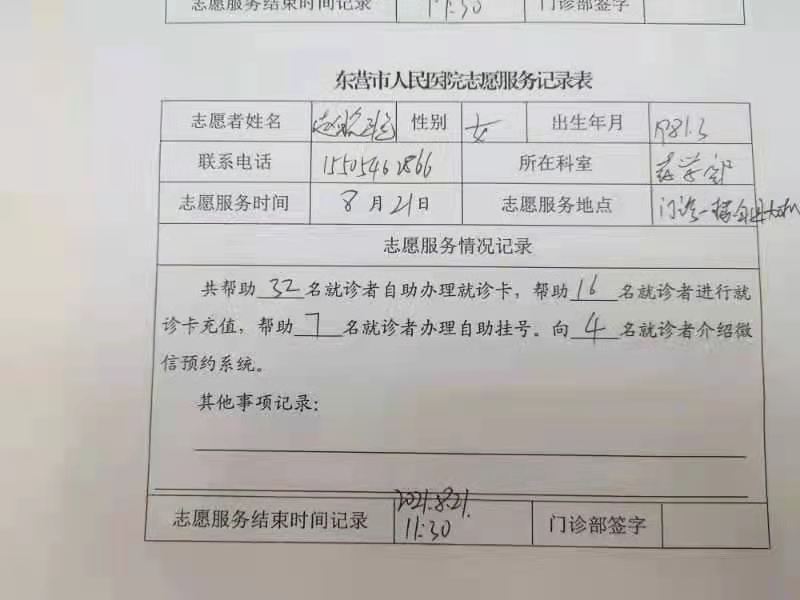 志愿服务结束时间记录 11:30 门诊部签字
东营市人民医院志愿服务记录表
志愿者姓名 性别 女 出生年月 1981.3
联系电话 15505462866 所在科室 药学部
志愿服务时间 8月21日 志愿服务地点 门诊一楼自助大机
志愿服务情况记录
共帮助32名就诊者自助办理就诊卡，帮助16名就诊者进行就
诊卡充值，帮助7名就诊者办理自助挂号。向4名就诊者介绍微
信预约系统。
其他事项记录：
2021.8.21.
志愿服务结束时间记录 11:30 门诊部签字